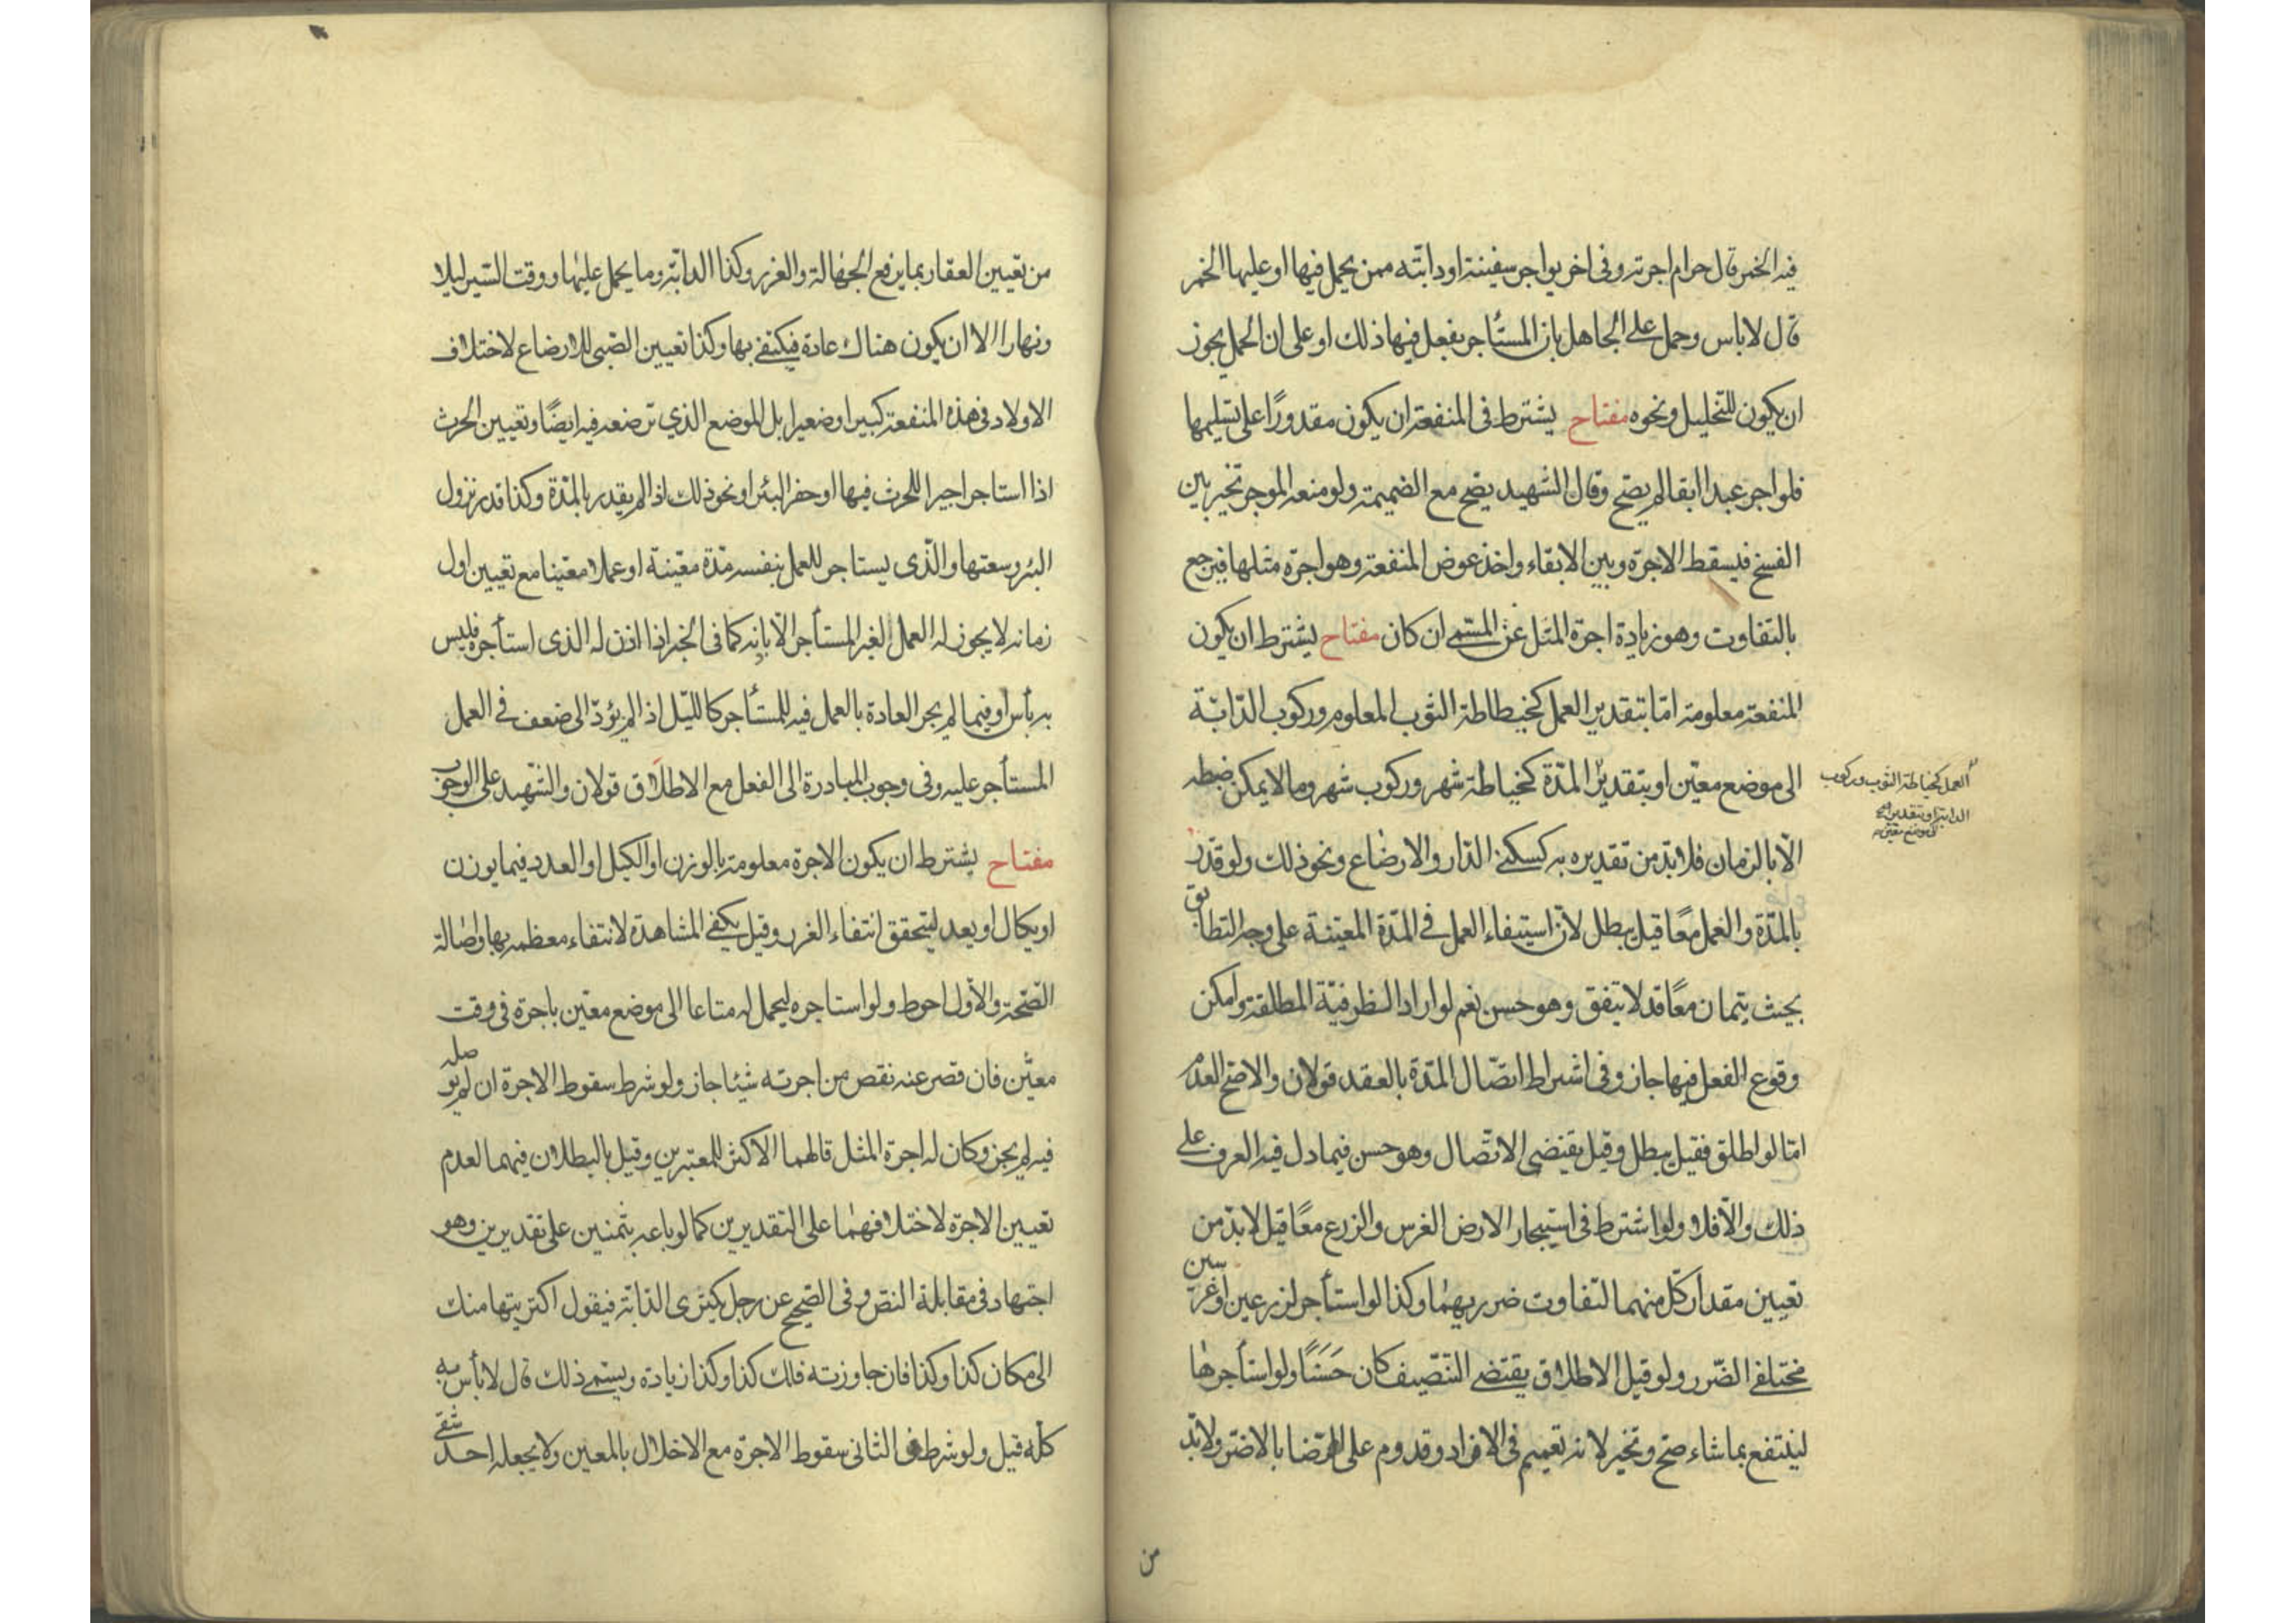 فيه الخمر قال حرام اجرته وفى اخر يواجر سفينته او دابته ممن يحمل فيها او عليها الخمر
قال لاباس وحمل على الجاهل بان المستأجر يفعل فيها ذلك او على ان الحمل يجوز
ان يكون للتخليل ونحوه مفتاح يشترط فى المنفعة ان يكون مقدورًا على تسليمها
فلو اجر عبدا ابقا لم يصح وقال الشهيد يصح مع الضميمة ولو منعه الموجر تخير بين
الفسخ فيسقط الاجرة وبين الابقاء واخذ عوض المنفعة وهو اجرة مثلها فيرجع
بالتفاوت وهو زيادة اجرة المثل عن المسمى ان كان مفتاح يشترط ان يكون
المنفعة معلومة امّا بتقدير العمل كخيطاطة الثوب المعلوم وركوب الدّابّة
الى موضع معيّن او بتقدير المدّة كخياطة شهر وركوب شهر وما لا يمكن ضبطه
العمل كخياطة الثوب وركوب
الدابة او بتقدير
الى موضع معين
الّا بالزمان فلا بدّ من تقديره به كسكنى الدّار والارضاع ونحو ذلك ولو قدّر
بالمدّة والعمل معًا قيل يبطل لانّ استيفاء العمل فى المدّة المعيّنة على وجه التطابق
بحيث يتمان معًا قد لا يتفق وهو حسن نعم لو اراد الظرفيّة المطلقة وامكن
وقوع الفعل فيها جاز وفى اشتراط اتصّال المدّة بالعقد قولان والاصح العدم
امّا لو اطلق فقيل يبطل وقيل يقتضى الاتّصال وهو حسن فيما دل فيه العرف على
ذلك والّا فلا ولو اشترط فى استيجار الارض الغرس والزرع معًا قيل لا بدّ من
تعيين مقدار كلّ منهما لتفاوت ضرريهما وكذا لو استأجر لزرعين او غرسين
مختلفى الضّرر ولو قيل الاطلاق يقتضى التنصيف كان حَسَنًا ولو استأجرها
لينتفع بما شاء صح وتخير لانه تعميم فى الافراد وقدوم على الرضا بالاضر ولا بدّ
من
من تعيين العقار بما يرفع الجهالة والغرر وكذا الدابّة وما يحمل عليها ووقت السّير ليلا
ونهارا الا ان يكون هناك عادة فيكتفى بها وكذا تعيين الصّبى للارضاع لاختلاف
الاولاد فى هذه المنفعة كبيرا وصغيرا بل الموضع الذي ترضعه فيه ايضًا وتعيين الحرث
اذا استاجر اجيرا للحرث فيها او حفر البئر او نحو ذلك اذا لم يقدر بالمدّة وكذا قدر نزول
البئر وسعتها والّذى يستاجر للعمل بنفسه مدّة معيّنة او عملا معينا مع تعيين اول
زمانه لا يجوز له العمل لغير المستأجر الّا باذنه كما فى الخبر اذا اذن له الذى استأجره فليس
به بأس او فيما لم يجر العادة بالعمل فيه للمستأجر كالليّل اذا لم يؤدّ الى ضعف فى العمل
المستأجر عليه وفى وجوب المبادرة الى الفعل مع الاطلاق قولان والشّهيد على الوجوب
مفتاح يشترط ان يكون الاجرة معلومة بالوزن او الكيل او العدد فيما يوزن
او يكال او يعد ليتحقق انتفاء الغرر وقيل يكفى المشاهدة لانتفاء معظمه بها واصالة
الصّحة والاوّل احوط ولو استاجره ليحمل له متاعا الى موضع معيّن باجرة فى وقت
معيّن فان قصر عنه نقص من اجرته شيئا جاز ولو شرط سقوط الاجرة ان لم يوصله
فيه لم يجز وكان له اجرة المثل قالهما الاكثر للمعتبرين وقيل بالبطلان فيهما لعدم
تعيين الاجرة لاختلافهما على التقديرين كما لو باعه بثمنين على تقديرين وهو
اجتهاد فى مقابلة النص وفى الصّحيح عن رجل يكترى الدّابّة فيقول اكتريتها منك
الى مكان كذا وكذا فان جاوزته فلك كذا وكذا زيادة ويسّمى ذلك قال لا بأس به
كلّه قيل ولو شرط فى الثانى سقوط الاجرة مع الاخلال بالمعين ولا يجعله احد شقى